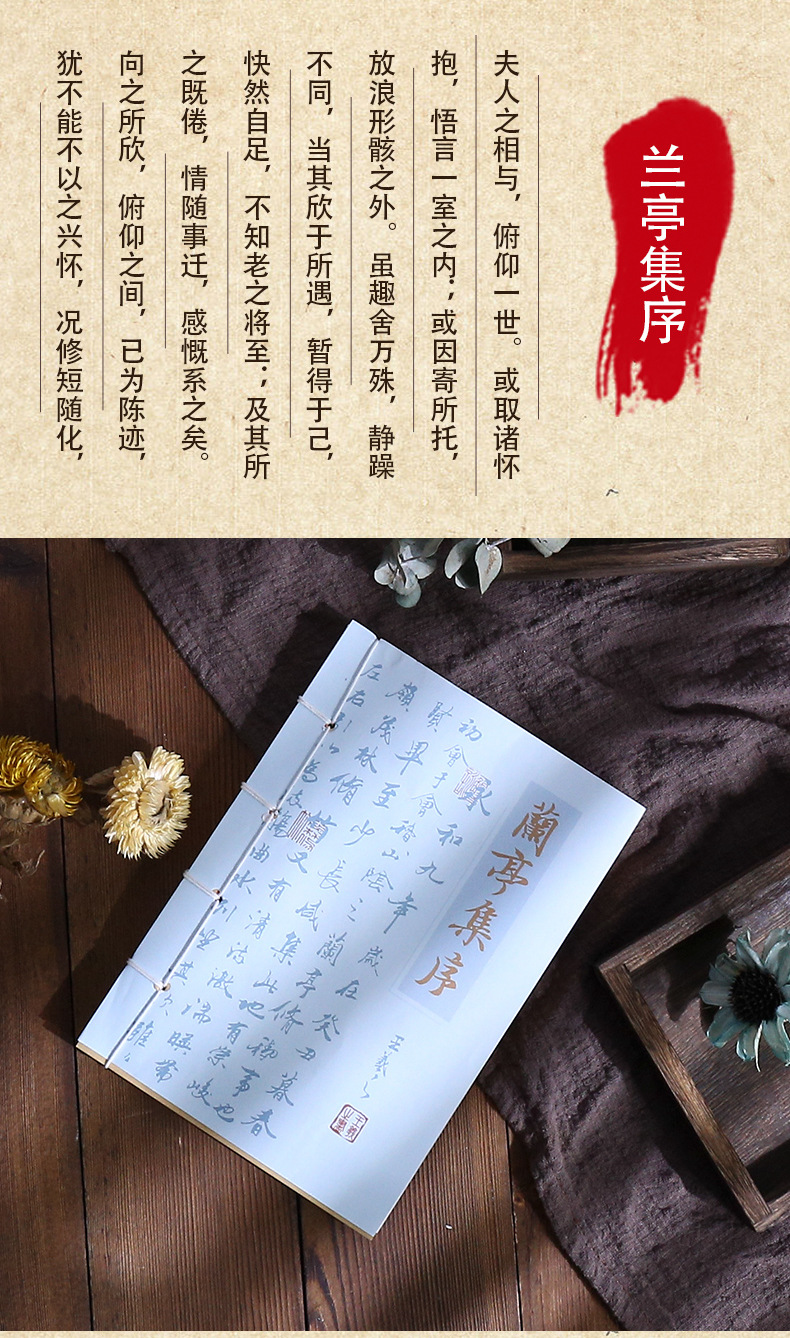 兰亭集序
夫人之相与，俯仰一世。或取诸怀
抱，悟言一室之内；或因寄所托，
放浪形骸之外。虽趣舍万殊，静躁
不同，当其欣于所遇，暂得于己，
快然自足，不知老之将至；及其所
之既倦，情随事迁，感慨系之矣。
向之所欣，俯仰之间，已为陈迹，
犹不能不以之兴怀，况修短随化，
蘭亭集序
王羲之
永和九年歲在癸丑暮春
初會于會稽山陰之蘭亭脩禊事
賢畢至少長咸集此地有崇峻
領茂林脩竹又有清流激湍暎帶
左右引以為流觴曲水列坐其次雖